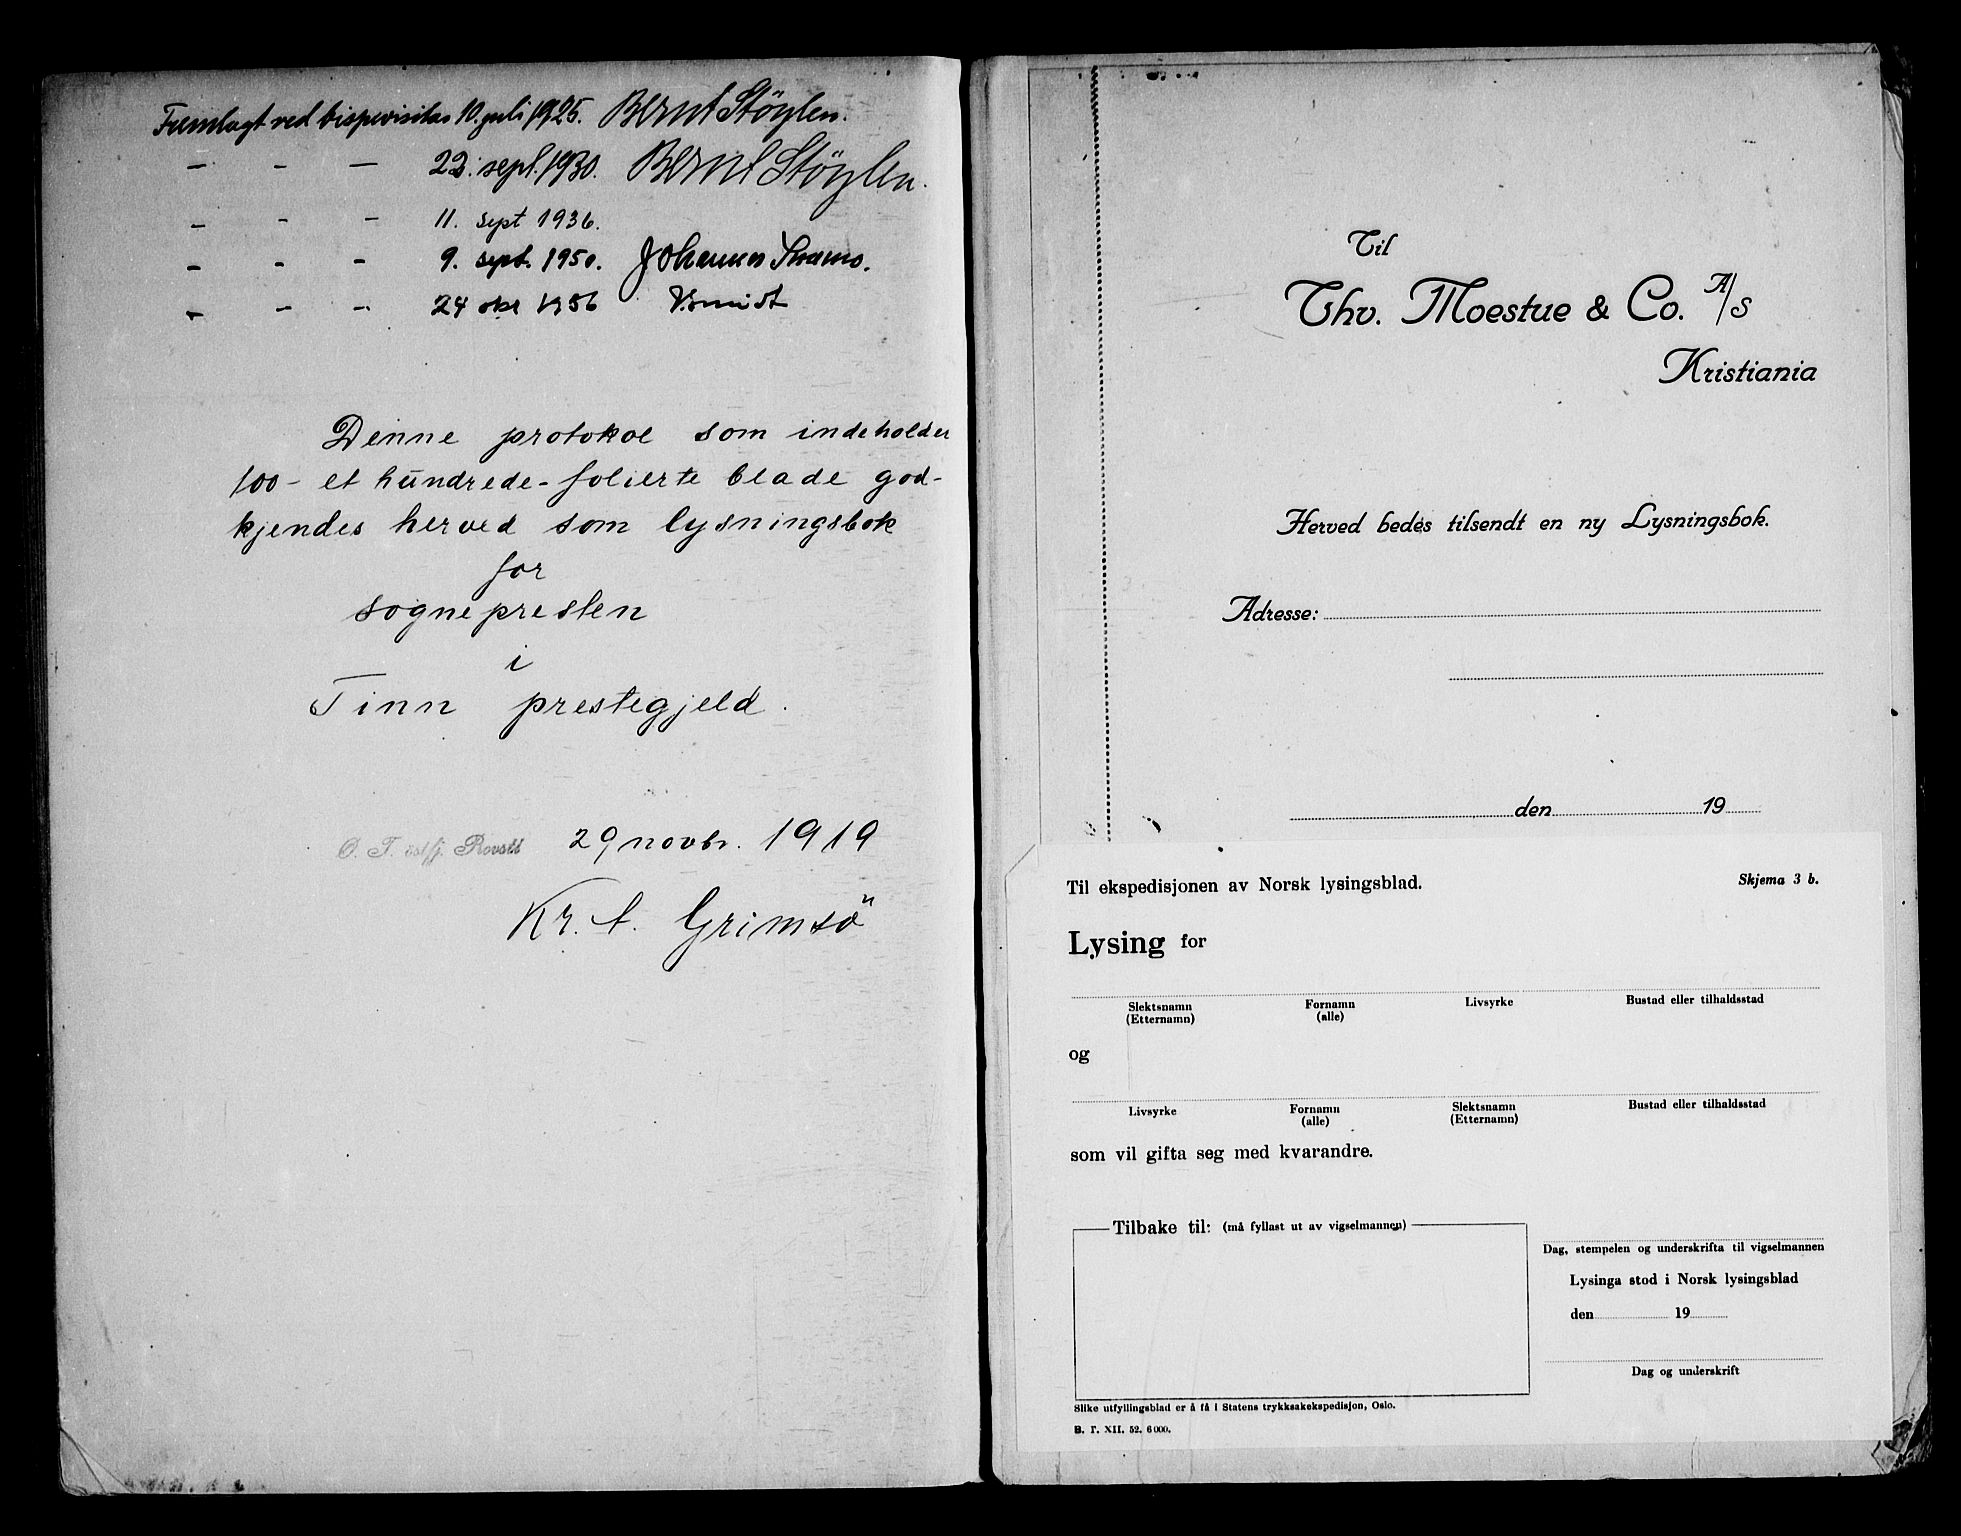 Fremlagt ved bispevisitas 10. juli 1925. Bernt Støylen.
— - — 22. sept. 1930. Bernt Støylen.
- - - 11. sept 1936.
- - - 9. sept. 1950. Johannes
- - - 24 okt 1956 Smidt
Denne protokol som indeholder
100 - et hundrede - folierte blade god-
kjendes herved som lysningsbok
for
sognepresten
i
Tinn prestegjeld.
Ø. T. østfj. 29 novbr. 1919
Kr. A. Grimsö
Til
Thv. Moestue & Co. A/S
Kristiania
Herved bedes tilsendt en ny Lysningsbok.
Adresse:
den 19
Til ekspedisjonen av Norsk lysingsblad. Skjema 3 b.
Lysing for
Slektsnamn Fornamn Livsyrke Bustad eller tilhaldsstad
(Etternamn) (alle)
og
Livsyrke Fornamn Slektsnamn Bustad eller tilhaldsstad
(alle) (Etternamn)
som vil gifta seg med kvarandre.
Tilbake til: (må fyllast ut av vigselmannen)
Dag, stempelen og underskrifta til vigselmannen
Lysinga stod i Norsk lysingsblad
den 19
Dag og underskrift
Slike utfyllingsblad er å få i Statens trykksakekspedisjon, Oslo.
B. T. XII. 52. 6 000.